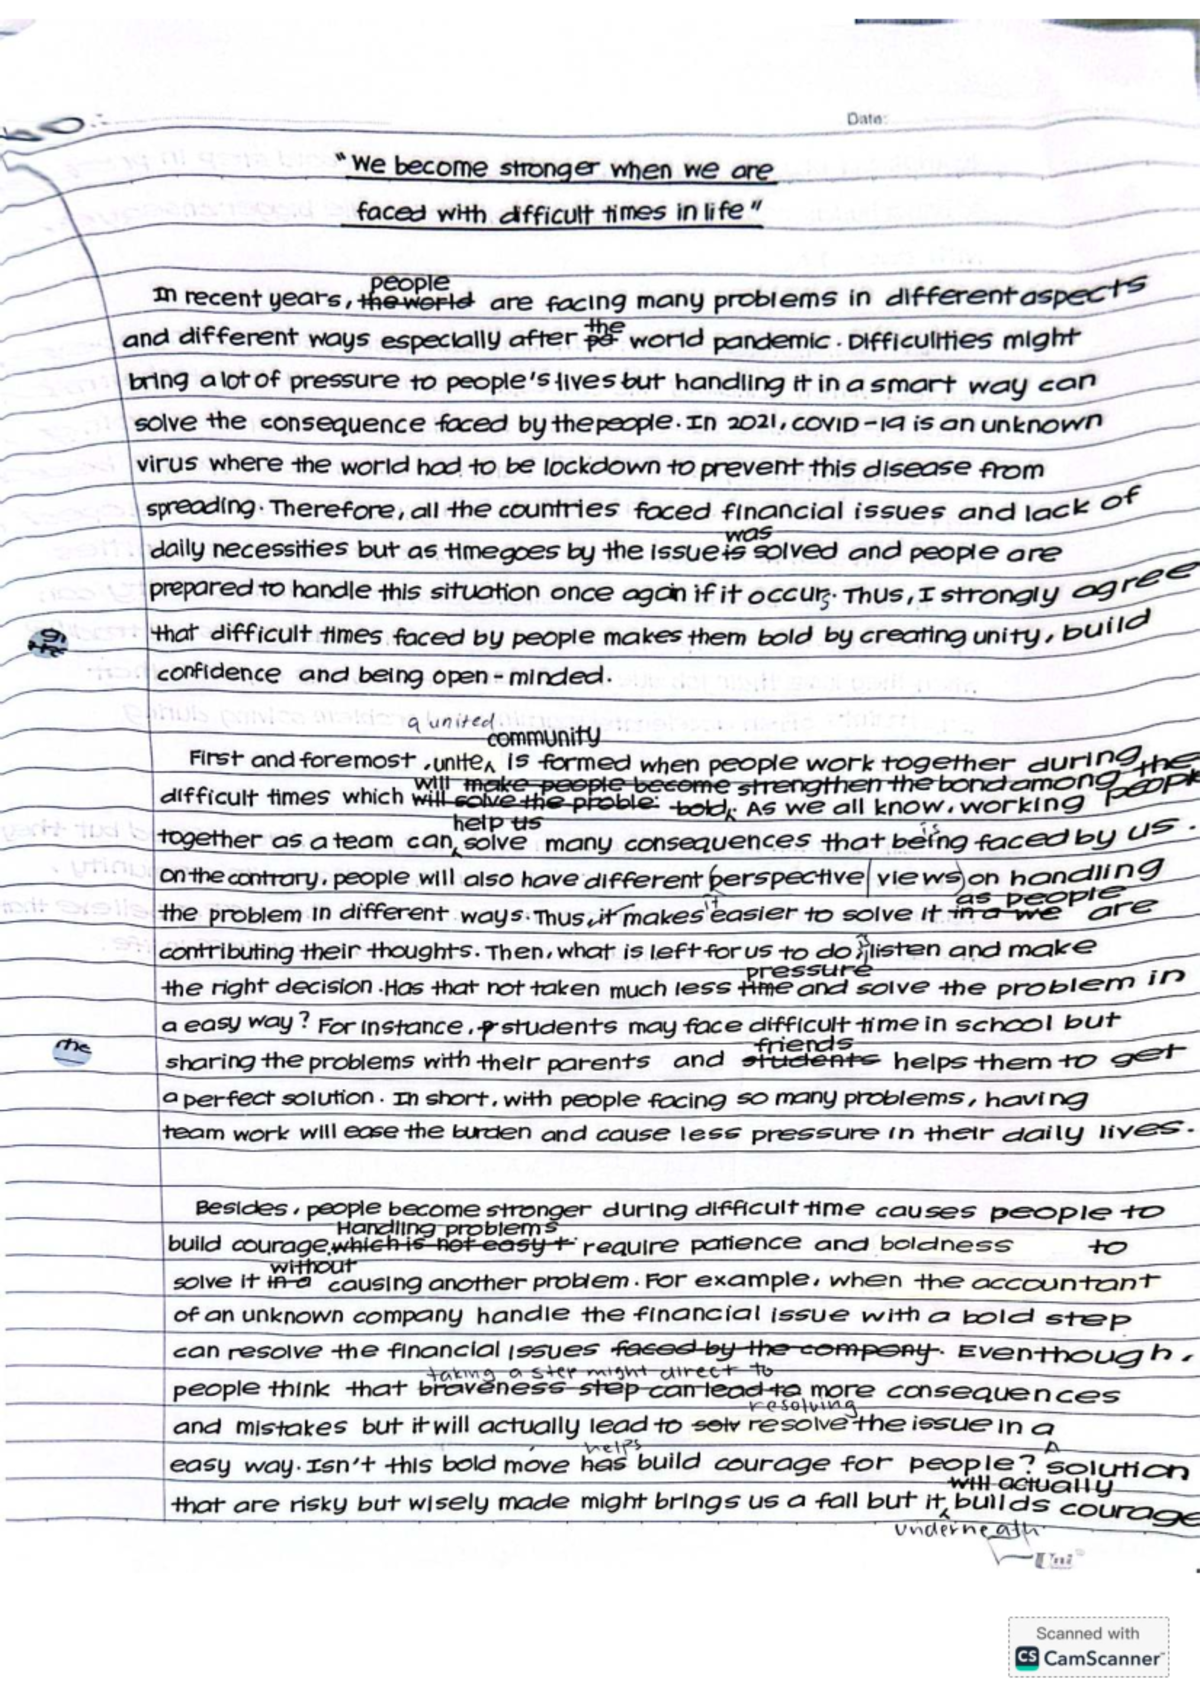 NO.:
Date:
"We become stronger when we are
faced with difficult times in life"
people
In recent years, the world are facing many problems in different aspects
the
and different ways especially after world pandemic. Difficulities might
bring a lot of pressure to people's lives but handling it in a smart way can
solve the consequence faced by the people. In 2021, COVID-19 is an unknown
virus where the world had to be lockdown to prevent this disease from
spreading. Therefore, all the countries faced financial issues and lack of
was
daily necessities but as time goes by the issue is solved and people are
prepared to handle this situation once again if it occurs. Thus, I strongly agree
that difficult times faced by people makes them bold by creating unity, build
confidence and being open-minded.
a united
community
First and foremost, unite is formed when people work together during
will make people become strengthen the bond among the people
difficult times which will solve the proble: bold. As we all know, working
help us
is
together as a team can solve many consequences that being faced by us.
on the contrary, people will also have different perspective views on handling
as people
it
the problem in different ways. Thus, it makes easier to solve it in a we are
contributing their thoughts. Then, what is left for us to do is listen and make
pressure
the right decision. Has that not taken much less time and solve the problem in
a easy way? For instance, students may face difficult time in school but
friends
the
sharing the problems with their parents and students helps them to get
a perfect solution. In short, with people facing so many problems, having
team work will ease the burden and cause less pressure in their daily lives.
Besides, people become stronger during difficult time causes people to
Handling problems
build courage. which is not easy t require patience and boldness to
without
solve it in a causing another problem. For example, when the accountant
of an unknown company handle the financial issue with a bold step
can resolve the financial issues faced by the company. Eventhough,
taking a step might direct to
people think that braveness step can lead to more consequences
resolving
and mistakes but it will actually lead to solv resolve the issue in a
helps
A
easy way. Isn't this bold move has build courage for people? solution
will actually
that are risky but wisely made might brings us a fall but it builds courage
underneath
Uni
Scanned with
CS CamScanner